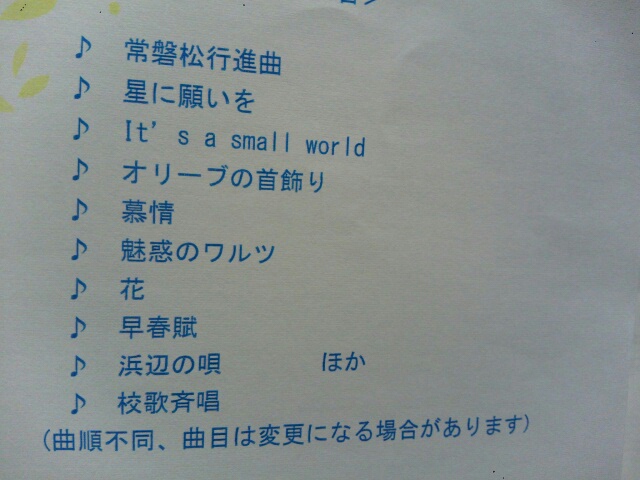 ♪ 常磐松行進曲
♪ 星に願いを
♪ It's a small world
♪ オリーブの首飾り
♪ 慕情
♪ 魅惑のワルツ
♪ 花
♪ 早春賦
♪ 浜辺の唄 ほか
♪ 校歌斉唱
(曲順不同、曲目は変更になる場合があります)